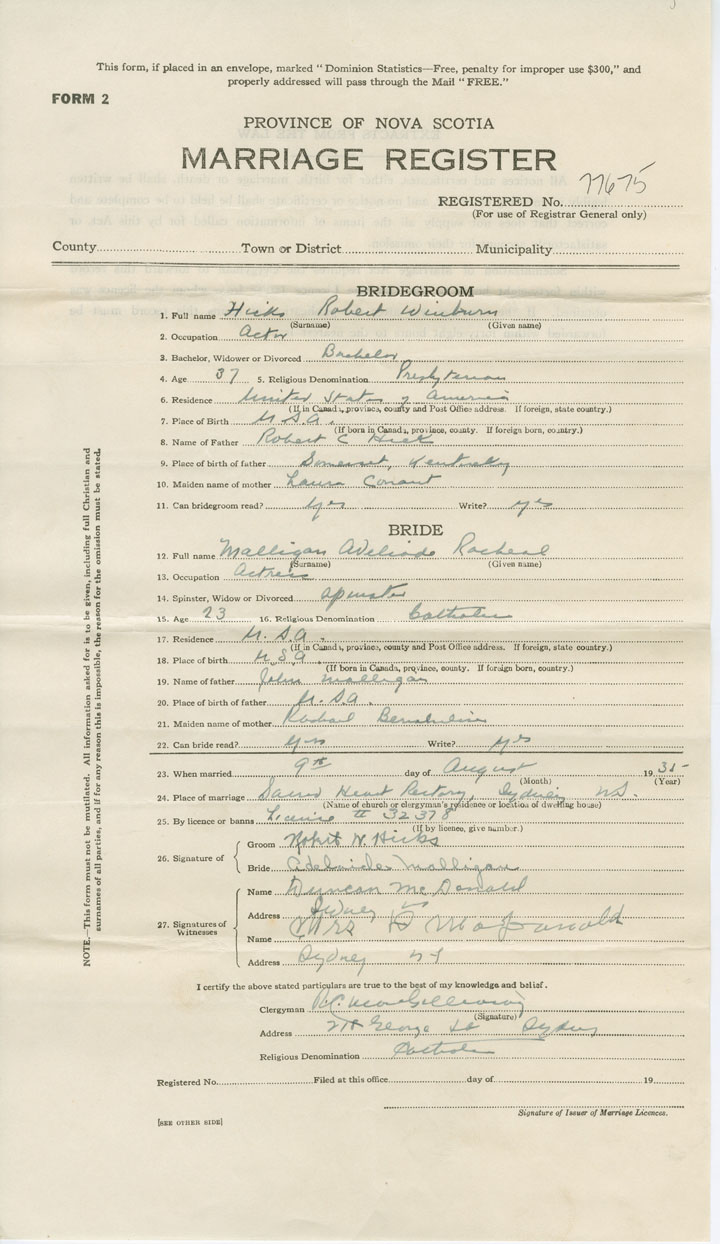 This form, if placed in an envelope, marked "Dominion Statistics—Free, penalty for improper use $300," and
properly addressed will pass through the Mail "FREE."
FORM 2
PROVINCE OF NOVA SCOTIA
MARRIAGE REGISTER
REGISTERED No. 77675
(For use of Registrar General only)
County Town or District Municipality
BRIDEGROOM
1. Full name Hicks Robert Winburn
(Surname) (Given name)
2. Occupation Actor
3. Bachelor, Widower or Divorced Bachelor
4. Age 37 5. Religious Denomination Presbyterian
6. Residence United States of America
(If in Canada, province, county and Post Office address. If foreign, state country.)
7. Place of Birth U.S.A.
(If born in Canada, province, county. If foreign born, country.)
8. Name of Father Robert C Hick
9. Place of birth of father Somerset, Kentucky
10. Maiden name of mother Laura Conant
11. Can bridegroom read? yes Write? yes
BRIDE
12. Full name Malligan Adeliade Racheal
(Surname) (Given name)
13. Occupation Actress
14. Spinster, Widow or Divorced spinster
15. Age 23 16. Religious Denomination Catholic
17. Residence U.S.A.
(If in Canada, province, county and Post Office address. If foreign, state country.)
18. Place of birth U.S.A.
(If born in Canada, province, county. If foreign born, country.)
19. Name of father John Malligan
20. Place of birth of father U.S.A.
21. Maiden name of mother Rachael
22. Can bride read? yes Write? yes
23. When married 9th day of August 1935
(Month) (Year)
24. Place of marriage Sacred Heart Rectory, Sydney NS.
(Name of church or clergyman's residence or location of dwelling house)
25. By licence or banns Licence # 32378
(If by licence, give number.)
26. Signature of
Groom Robert W. Hicks
Bride Adelaide Malligan
27. Signatures of Witnesses
Name Duncan McDonald
Address Sydney NS
Name Mrs D MacDonald
Address Sydney NS
I certify the above stated particulars are true to the best of my knowledge and belief.
Clergyman MacGillivray
(Signature)
Address George St Sydney
Religious Denomination Catholic
Registered No. Filed at this office day of 19
Signature of Issuer of Marriage Licences.
[SEE OTHER SIDE]
NOTE.—This form must not be mutilated. All information asked for is to be given, including full Christian and
surnames of all parties, and if for any reason this is impossible, the reason for the omission must be stated.